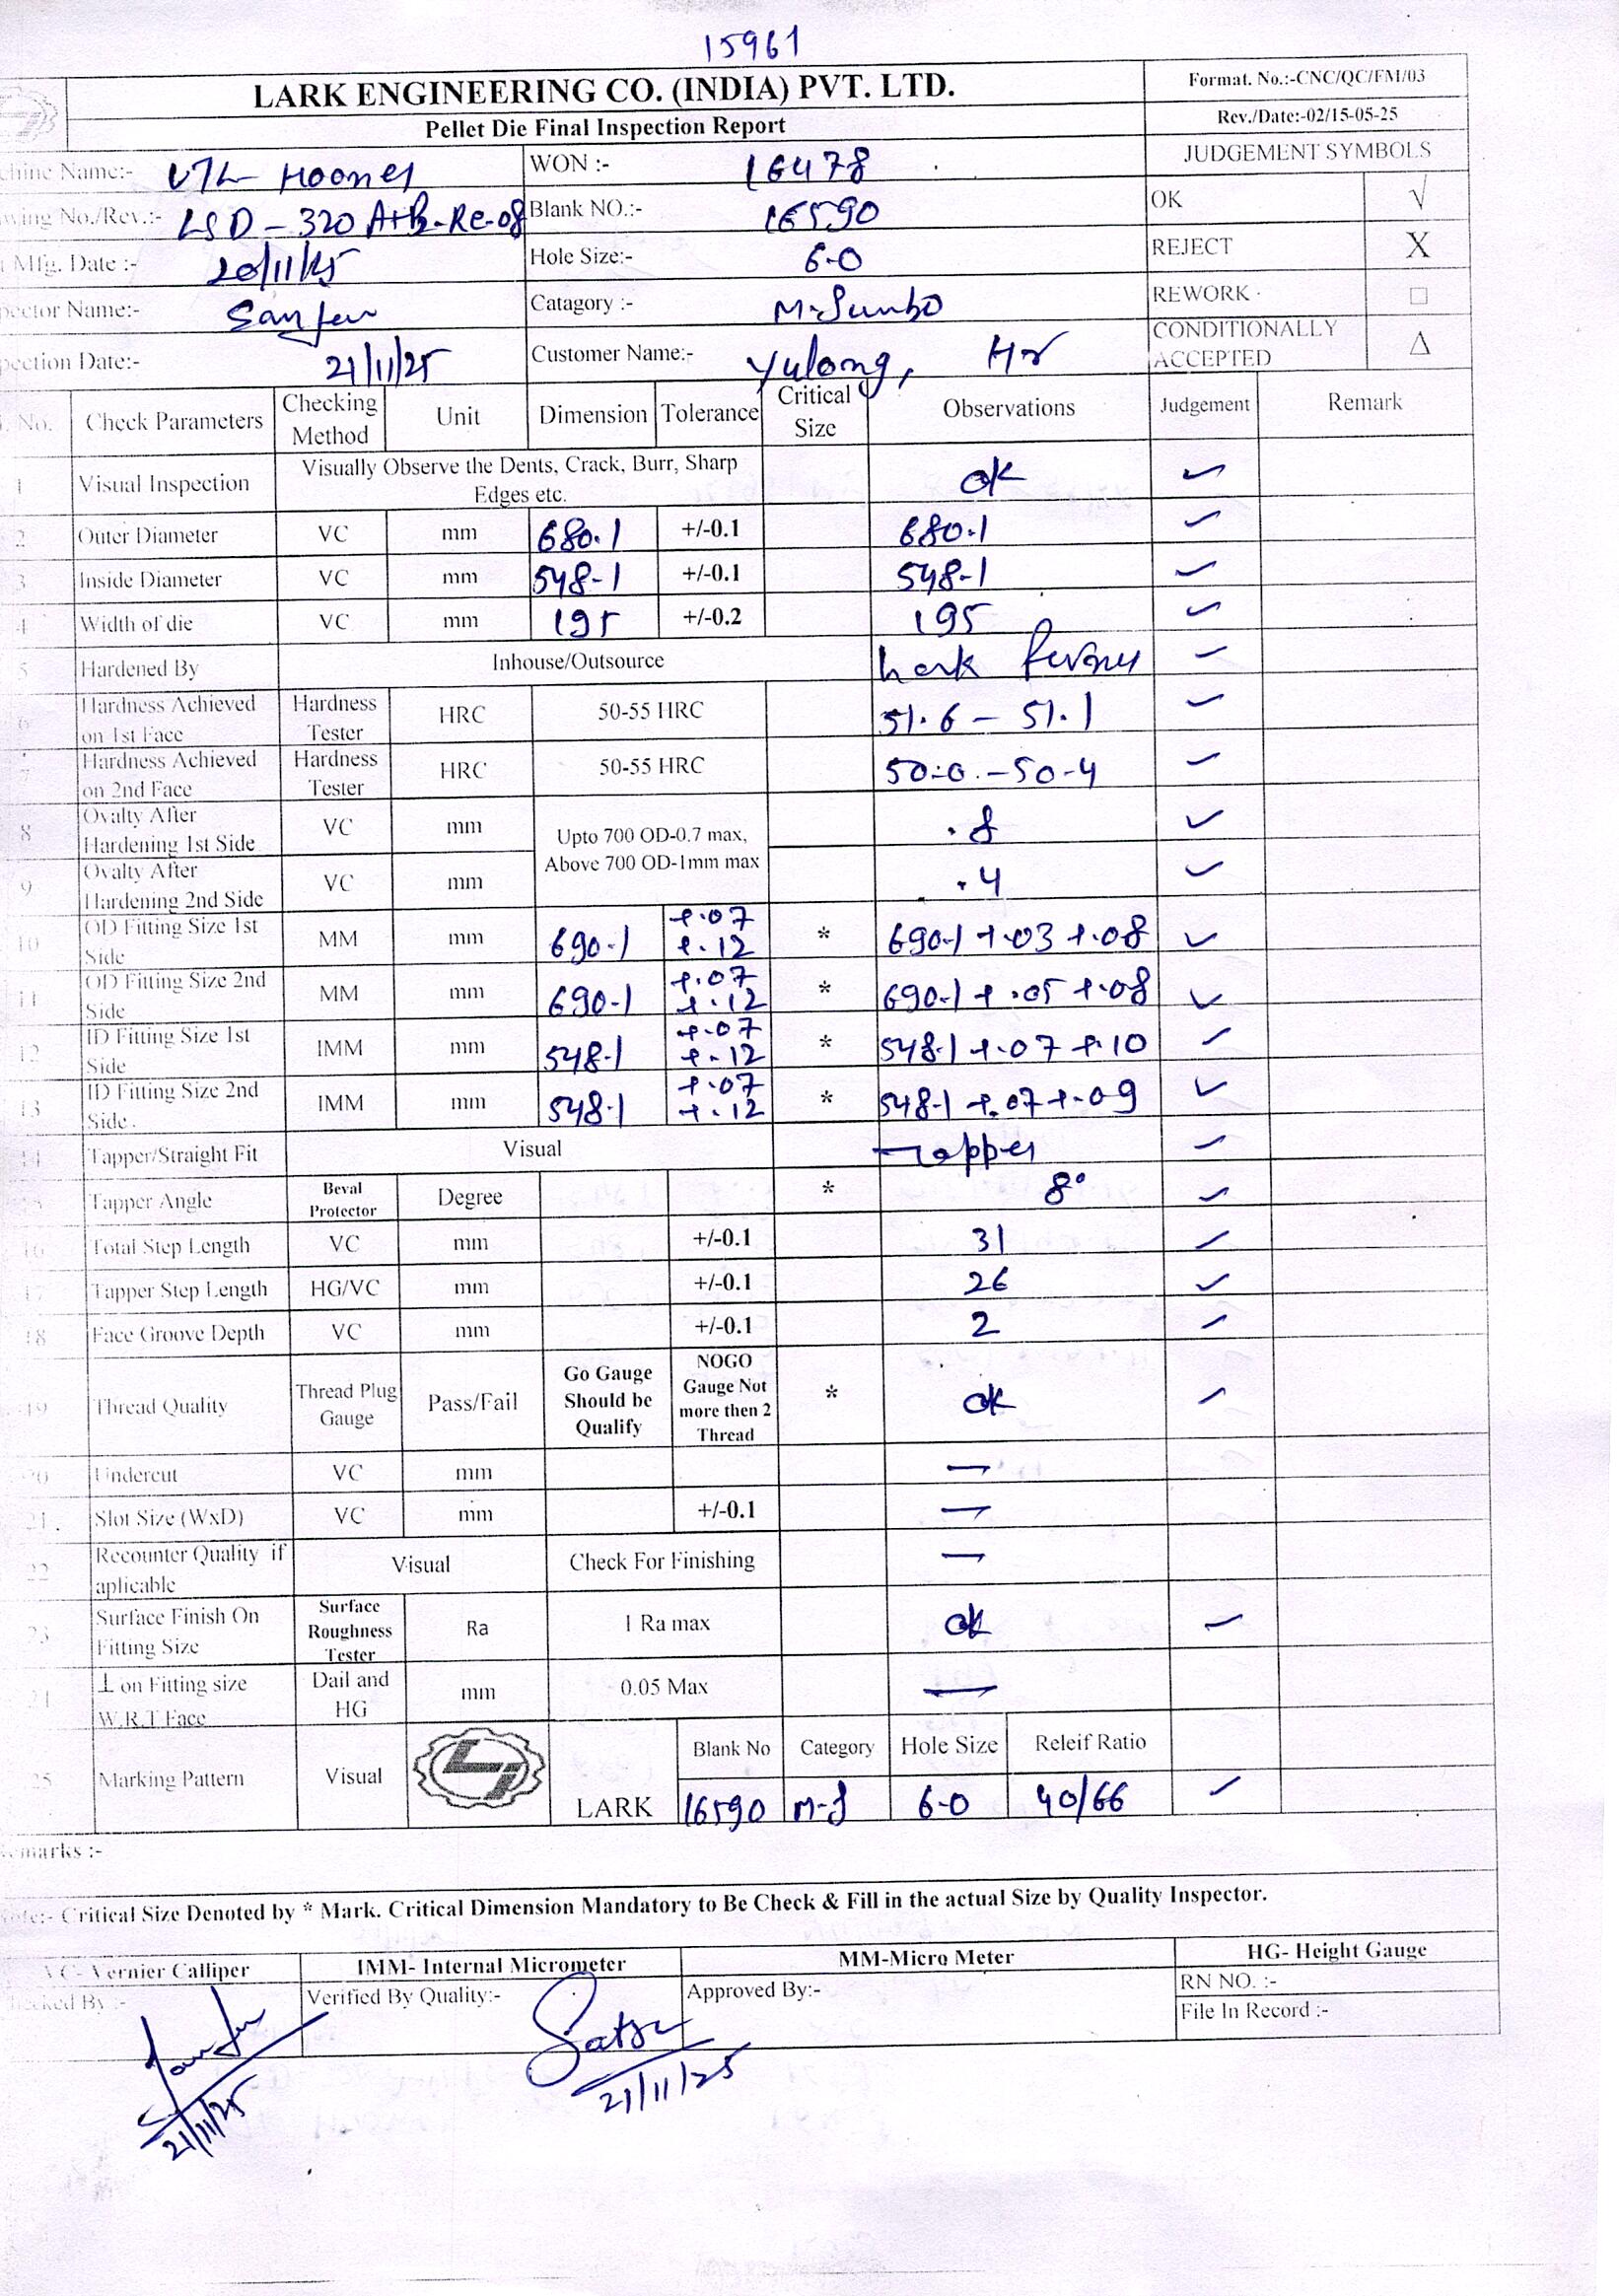 15961
LARK ENGINEERING CO. (INDIA) PVT. LTD.
Format. No.:-CNC/QC/FM/03
Pellet Die Final Inspection Report
Rev./Date:-02/15-05-25
chine Name:- VTL WON :- 16478 JUDGEMENT SYMBOLS
wing No./Rev.:- LSD-320 A+B-Re-08 Blank NO.:- 16590 OK √
Mfg. Date :- 20/11/25 Hole Size:- 6.0 REJECT X
pector Name:- Catagory :- M.Jumbo REWORK □
pection Date:- 21/11/25 Customer Name:- Yulong, Hr CONDITIONALLY ACCEPTED Δ
No. Check Parameters Checking Method Unit Dimension Tolerance Critical Size Observations Judgement Remark
1 Visual Inspection Visually Observe the Dents, Crack, Burr, Sharp Edges etc. ok ✓
2 Outer Diameter VC mm 680.1 +/-0.1 680.1 ✓
3 Inside Diameter VC mm 548-1 +/-0.1 548-1 ✓
4 Width of die VC mm 195 +/-0.2 195 ✓
5 Hardened By Inhouse/Outsource Lark ✓
6 Hardness Achieved on 1st Face Hardness Tester HRC 50-55 HRC 51.6 - 51.1 ✓
7 Hardness Achieved on 2nd Face Hardness Tester HRC 50-55 HRC 50.0 - 50-4 ✓
8 Ovalty After Hardening 1st Side VC mm Upto 700 OD-0.7 max, Above 700 OD-1mm max .8 ✓
9 Ovalty After Hardening 2nd Side VC mm .4 ✓
10 OD Fitting Size 1st Side MM mm 690-1 +.07 +.12 * 690-1 +.03 +.08 ✓
11 OD Fitting Size 2nd Side MM mm 690-1 +.07 +.12 * 690-1 +.05 +.08 ✓
12 ID Fitting Size 1st Side IMM mm 548-1 +.07 +.12 * 548-1 +.07 +.10 ✓
13 ID Fitting Size 2nd Side. IMM mm 548-1 +.07 +.12 * 548-1 +.07 +.09 ✓
14 Tapper/Straight Fit Visual Tapper ✓
15 Tapper Angle Beval Protector Degree * 8° ✓
16 Total Step Length VC mm +/-0.1 31 ✓
17 Tapper Step Length HG/VC mm +/-0.1 26 ✓
18 Face Groove Depth VC mm +/-0.1 2 ✓
19 Thread Quality Thread Plug Gauge Pass/Fail Go Gauge Should be Qualify NOGO Gauge Not more then 2 Thread * ok ✓
20 Undercut VC mm —
21. Slot Size (WxD) VC mm +/-0.1 —
22 Recounter Quality if aplicable Visual Check For Finishing —
23 Surface Finish On Fitting Size Surface Roughness Tester Ra 1 Ra max ok ✓
24 ⊥ on Fitting size W.R.T Face Dail and HG mm 0.05 Max —
25 Marking Pattern Visual LARK Blank No Category Hole Size Releif Ratio
16590 M-J 6-0 40/66 ✓
emarks :-
Note:- Critical Size Denoted by * Mark. Critical Dimension Mandatory to Be Check & Fill in the actual Size by Quality Inspector.
VC- Vernier Calliper IMM- Internal Micrometer MM-Micro Meter HG- Height Gauge
hecked By :- Verified By Quality:- Approved By:- RN NO. :-
File In Record :-
21/11/25 21/11/25